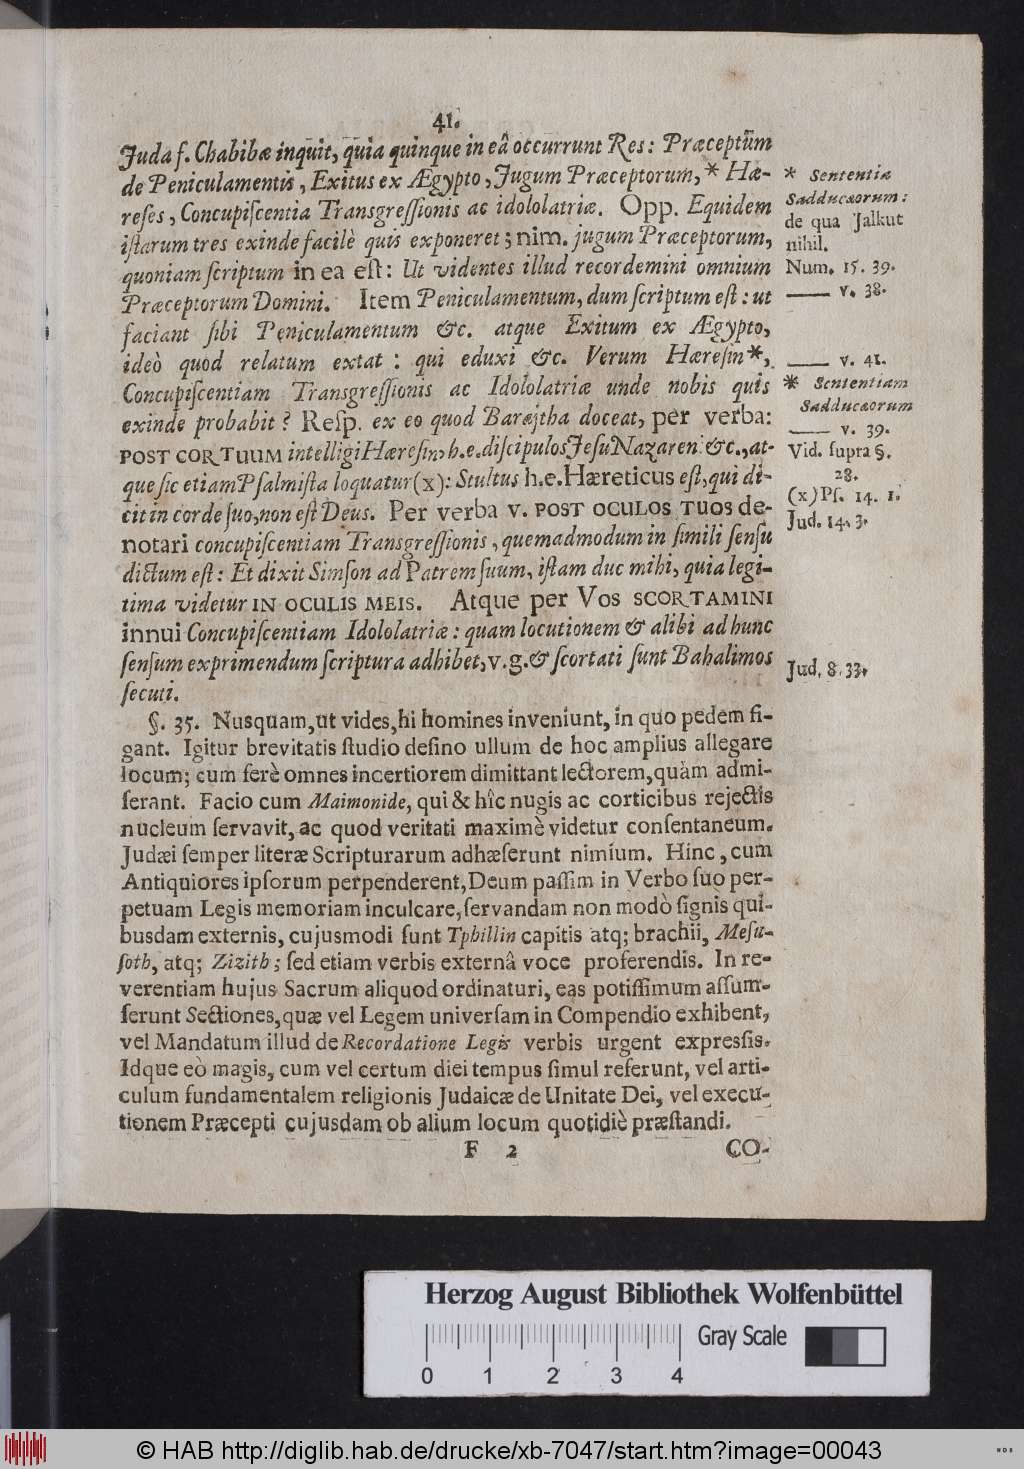 41.
Juda f. Chabibæ inquit, quia quinque in eâ occurrunt Res: Præceptũm
de Peniculamentis, Exitus ex Ægypto, Jugum Præceptorum, * Hæ-
reſes, Concupiſcentia Transgreſſionis ac idololatriæ. Opp. Equidem
iſtarum tres exinde facilè quis exponeret; nim. jugum Præceptorum,
quoniam ſcriptum in ea eſt: Ut videntes illud recordemini omnium
Præceptorum Domini. Item Peniculamentum, dum ſcriptum eſt: ut
faciant ſibi Peniculamentum &c. atque Exitum ex Ægypto,
ideò quod relatum extat: qui eduxi &c. Verum Hæreſin *,
Concupiſcentiam Transgreſſionis ac Idololatriæ unde nobis quis
exinde probabit? Reſp. ex eo quod Barajtha doceat, per verba:
POST COR TUUM intelligi Hæreſin, h.e. diſcipulos Jeſu Nazaren: &c., at-
que ſic etiam Pſalmiſta loquatur (x): Stultus h.e. Hæreticus eſt, qui di-
cit in corde ſuo, non eſt Deus. Per verba v. POST OCULOS TUOS de-
notari concupiſcentiam Transgreſſionis, quemadmodum in ſimili ſenſu
dictum eſt: Et dixit Simſon ad Patrem ſuum, iſtam duc mihi, quia legi-
tima videtur IN OCULIS MEIS. Atque per Vos SCORTAMINI
innui Concupiſcentiam Idololatriæ: quam locutionem & alibi ad hunc
ſenſum exprimendum ſcriptura adhibet, v.g. & ſcortati ſunt Bahalimos
ſecuti.
* Sententia
Sadducæorum:
de qua Jalkut
nihil.
Num. 15. 39.
—— v. 38.
—— v. 41.
* Sententiam
Sadducæorum
—— v. 39.
Vid. ſupra §.
28.
(x) Pſ. 14. 1.
Jud. 14. 3.
Jud. 8. 33.
§. 35. Nusquam, ut vides, hi homines inveniunt, in quo pedem fi-
gant. Igitur brevitatis ſtudio deſino ullum de hoc amplius allegare
locum; cum ferè omnes incertiorem dimittant lectorem, quàm admi-
ſerant. Facio cum Maimonide, qui & hîc nugis ac corticibus rejectis
nucleum ſervavit, ac quod veritati maximè videtur conſentaneum.
Judæi ſemper literæ Scripturarum adhæſerunt nimium. Hinc, cum
Antiquiores ipſorum perpenderent, Deum paſſim in Verbo ſuo per-
petuam Legis memoriam inculcare, ſervandam non modò ſignis qui-
busdam externis, cujusmodi ſunt Tphillin capitis atq; brachii, Meſu-
ſoth, atq; Zizith; ſed etiam verbis externâ voce proferendis. In re-
verentiam hujus Sacrum aliquod ordinaturi, eas potiſſimum aſſum-
ſerunt Sectiones, quæ vel Legem univerſam in Compendio exhibent,
vel Mandatum illud de Recordatione Legis verbis urgent expreſsis.
Idque eò magis, cum vel certum diei tempus ſimul referunt, vel arti-
culum fundamentalem religionis Judaicæ de Unitate Dei, vel execu-
tionem Præcepti cujusdam ob alium locum quotidiè præſtandi.
F 2
CO-
Herzog August Bibliothek Wolfenbüttel
Gray Scale
0 1 2 3 4
© HAB http://diglib.hab.de/drucke/xb-7047/start.htm?image=00043